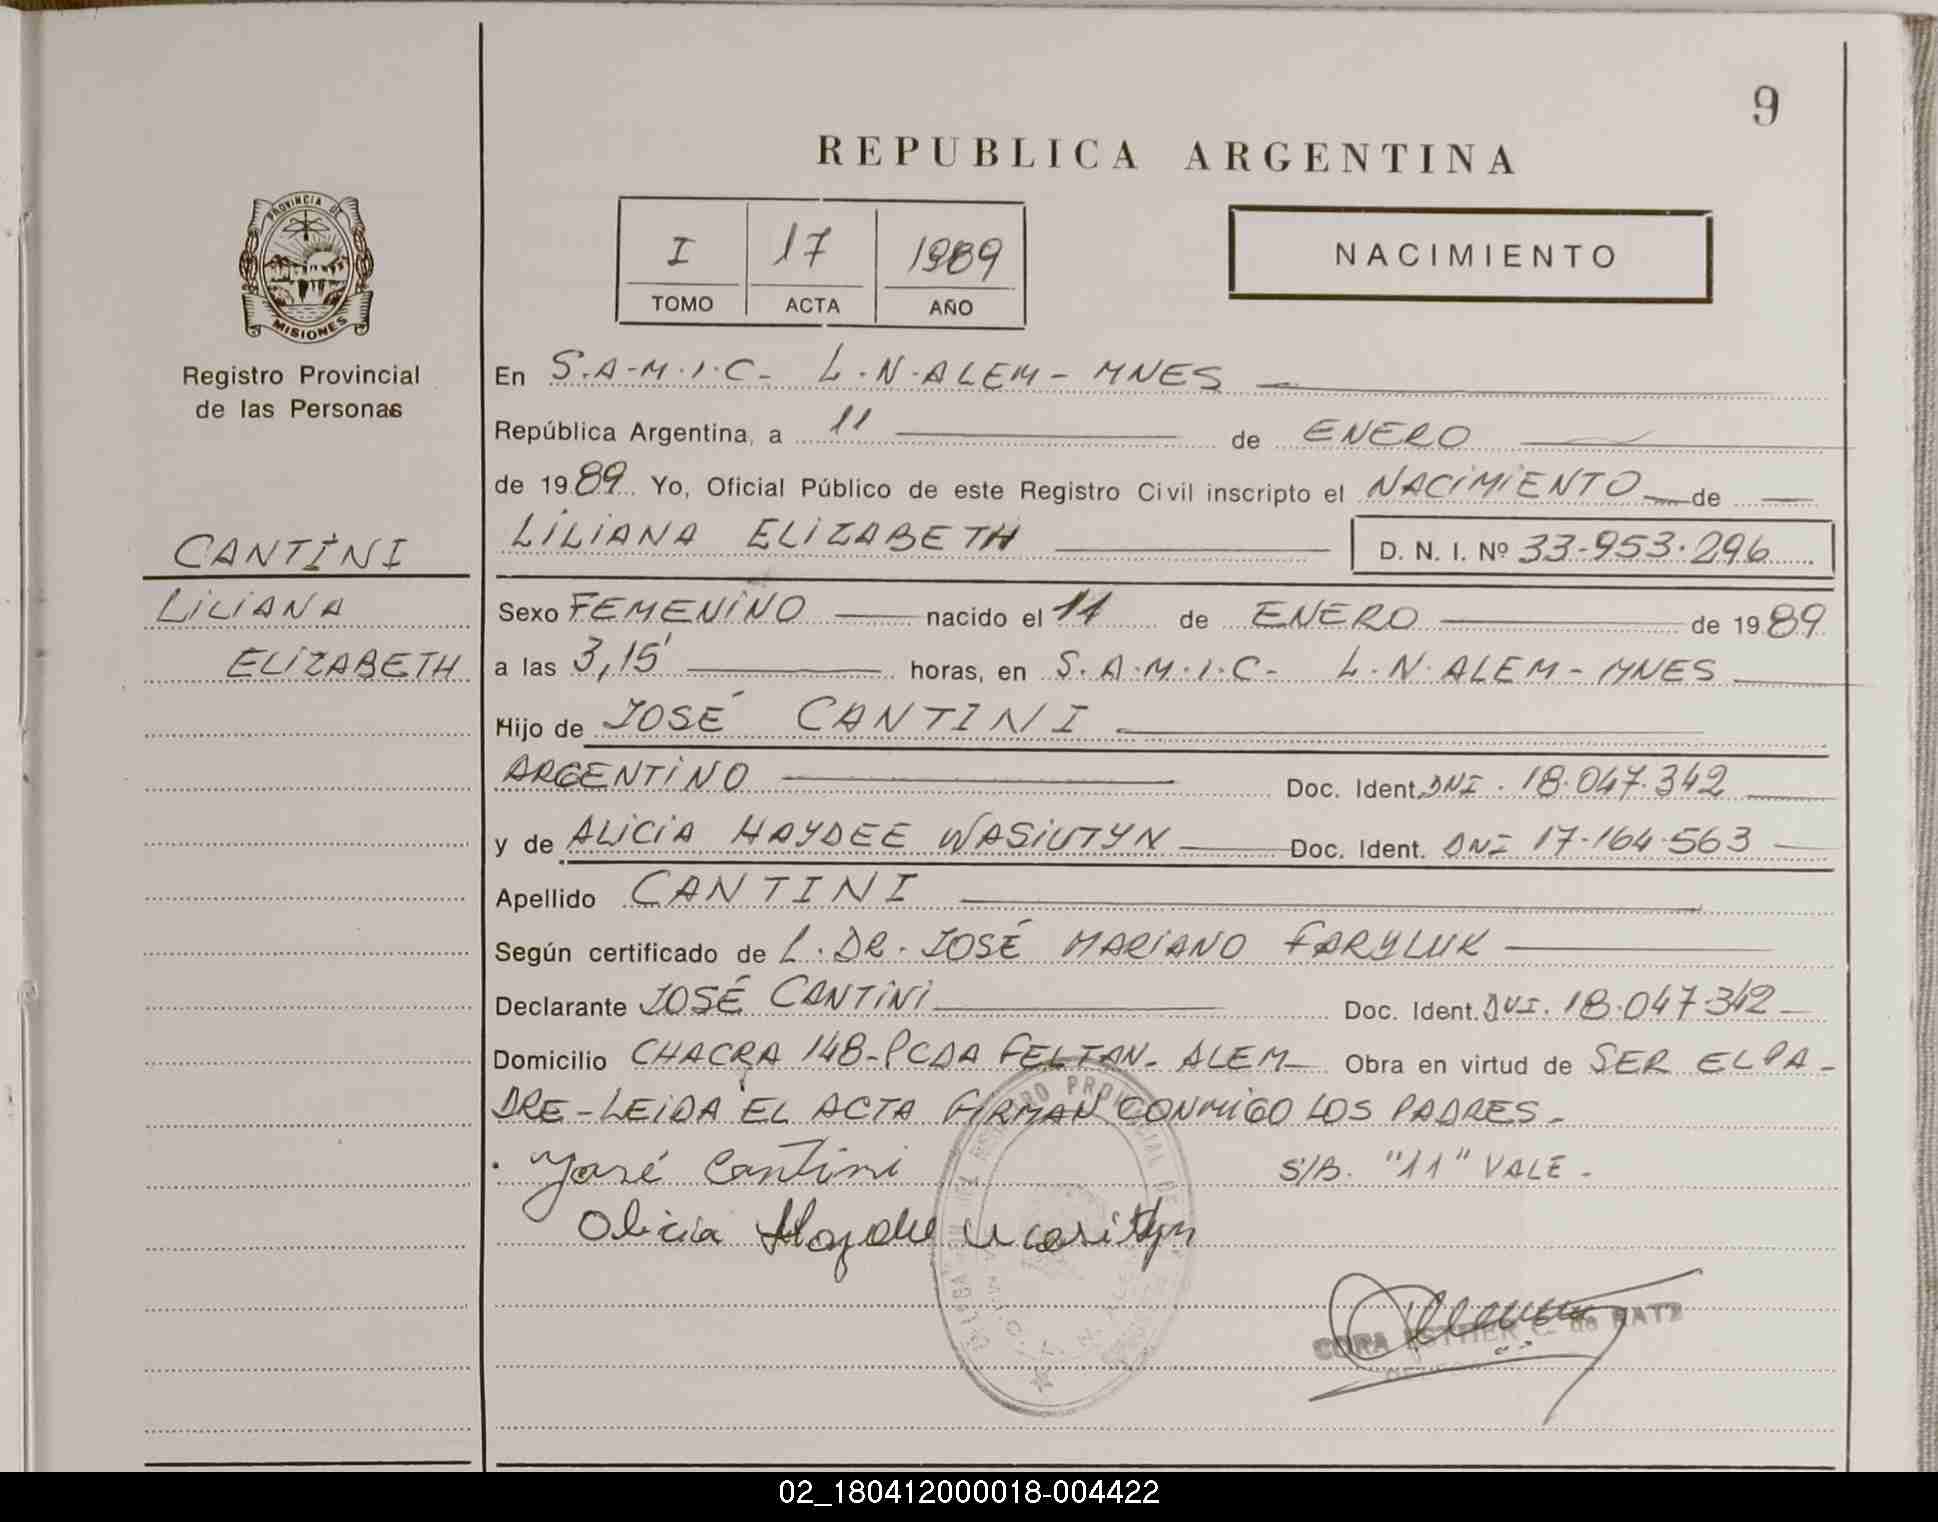 9
REPUBLICA ARGENTINA
PROVINCIA DE
MISIONES
Registro Provincial
de las Personas
I 17 1989
TOMO ACTA AÑO
NACIMIENTO
En S.A.M.I.C. L.N.ALEM - MNES
República Argentina, a 11 de ENERO
de 1989. Yo, Oficial Público de este Registro Civil inscripto el NACIMIENTO de
CANTINI
LILIANA ELIZABETH D. N. I. Nº 33.953.296
LILIANA
Sexo FEMENINO nacido el 11 de ENERO de 1989
ELIZABETH
a las 3,15' horas, en S.A.M.I.C- L.N.ALEM - MNES
Hijo de JOSÉ CANTINI
ARGENTINO Doc. Ident. DNI. 18.047.342
y de ALICIA HAYDEE WASIUTYN Doc. Ident. DNI 17.164.563
Apellido CANTINI
Según certificado de L. DR. JOSÉ MARIANO FARYLUK
Declarante JOSÉ CANTINI Doc. Ident. DNI. 18.047.342
Domicilio CHACRA 148-PCDA FELTAN- ALEM Obra en virtud de SER EL PA-
DRE-LEIDA EL ACTA FIRMAN CONMIGO LOS PADRES-
José Cantini S/B. "11" VALE-
Alicia Haydee Wasiutyn
CORA ESTHER C. de RATZ
02_180412000018-004422